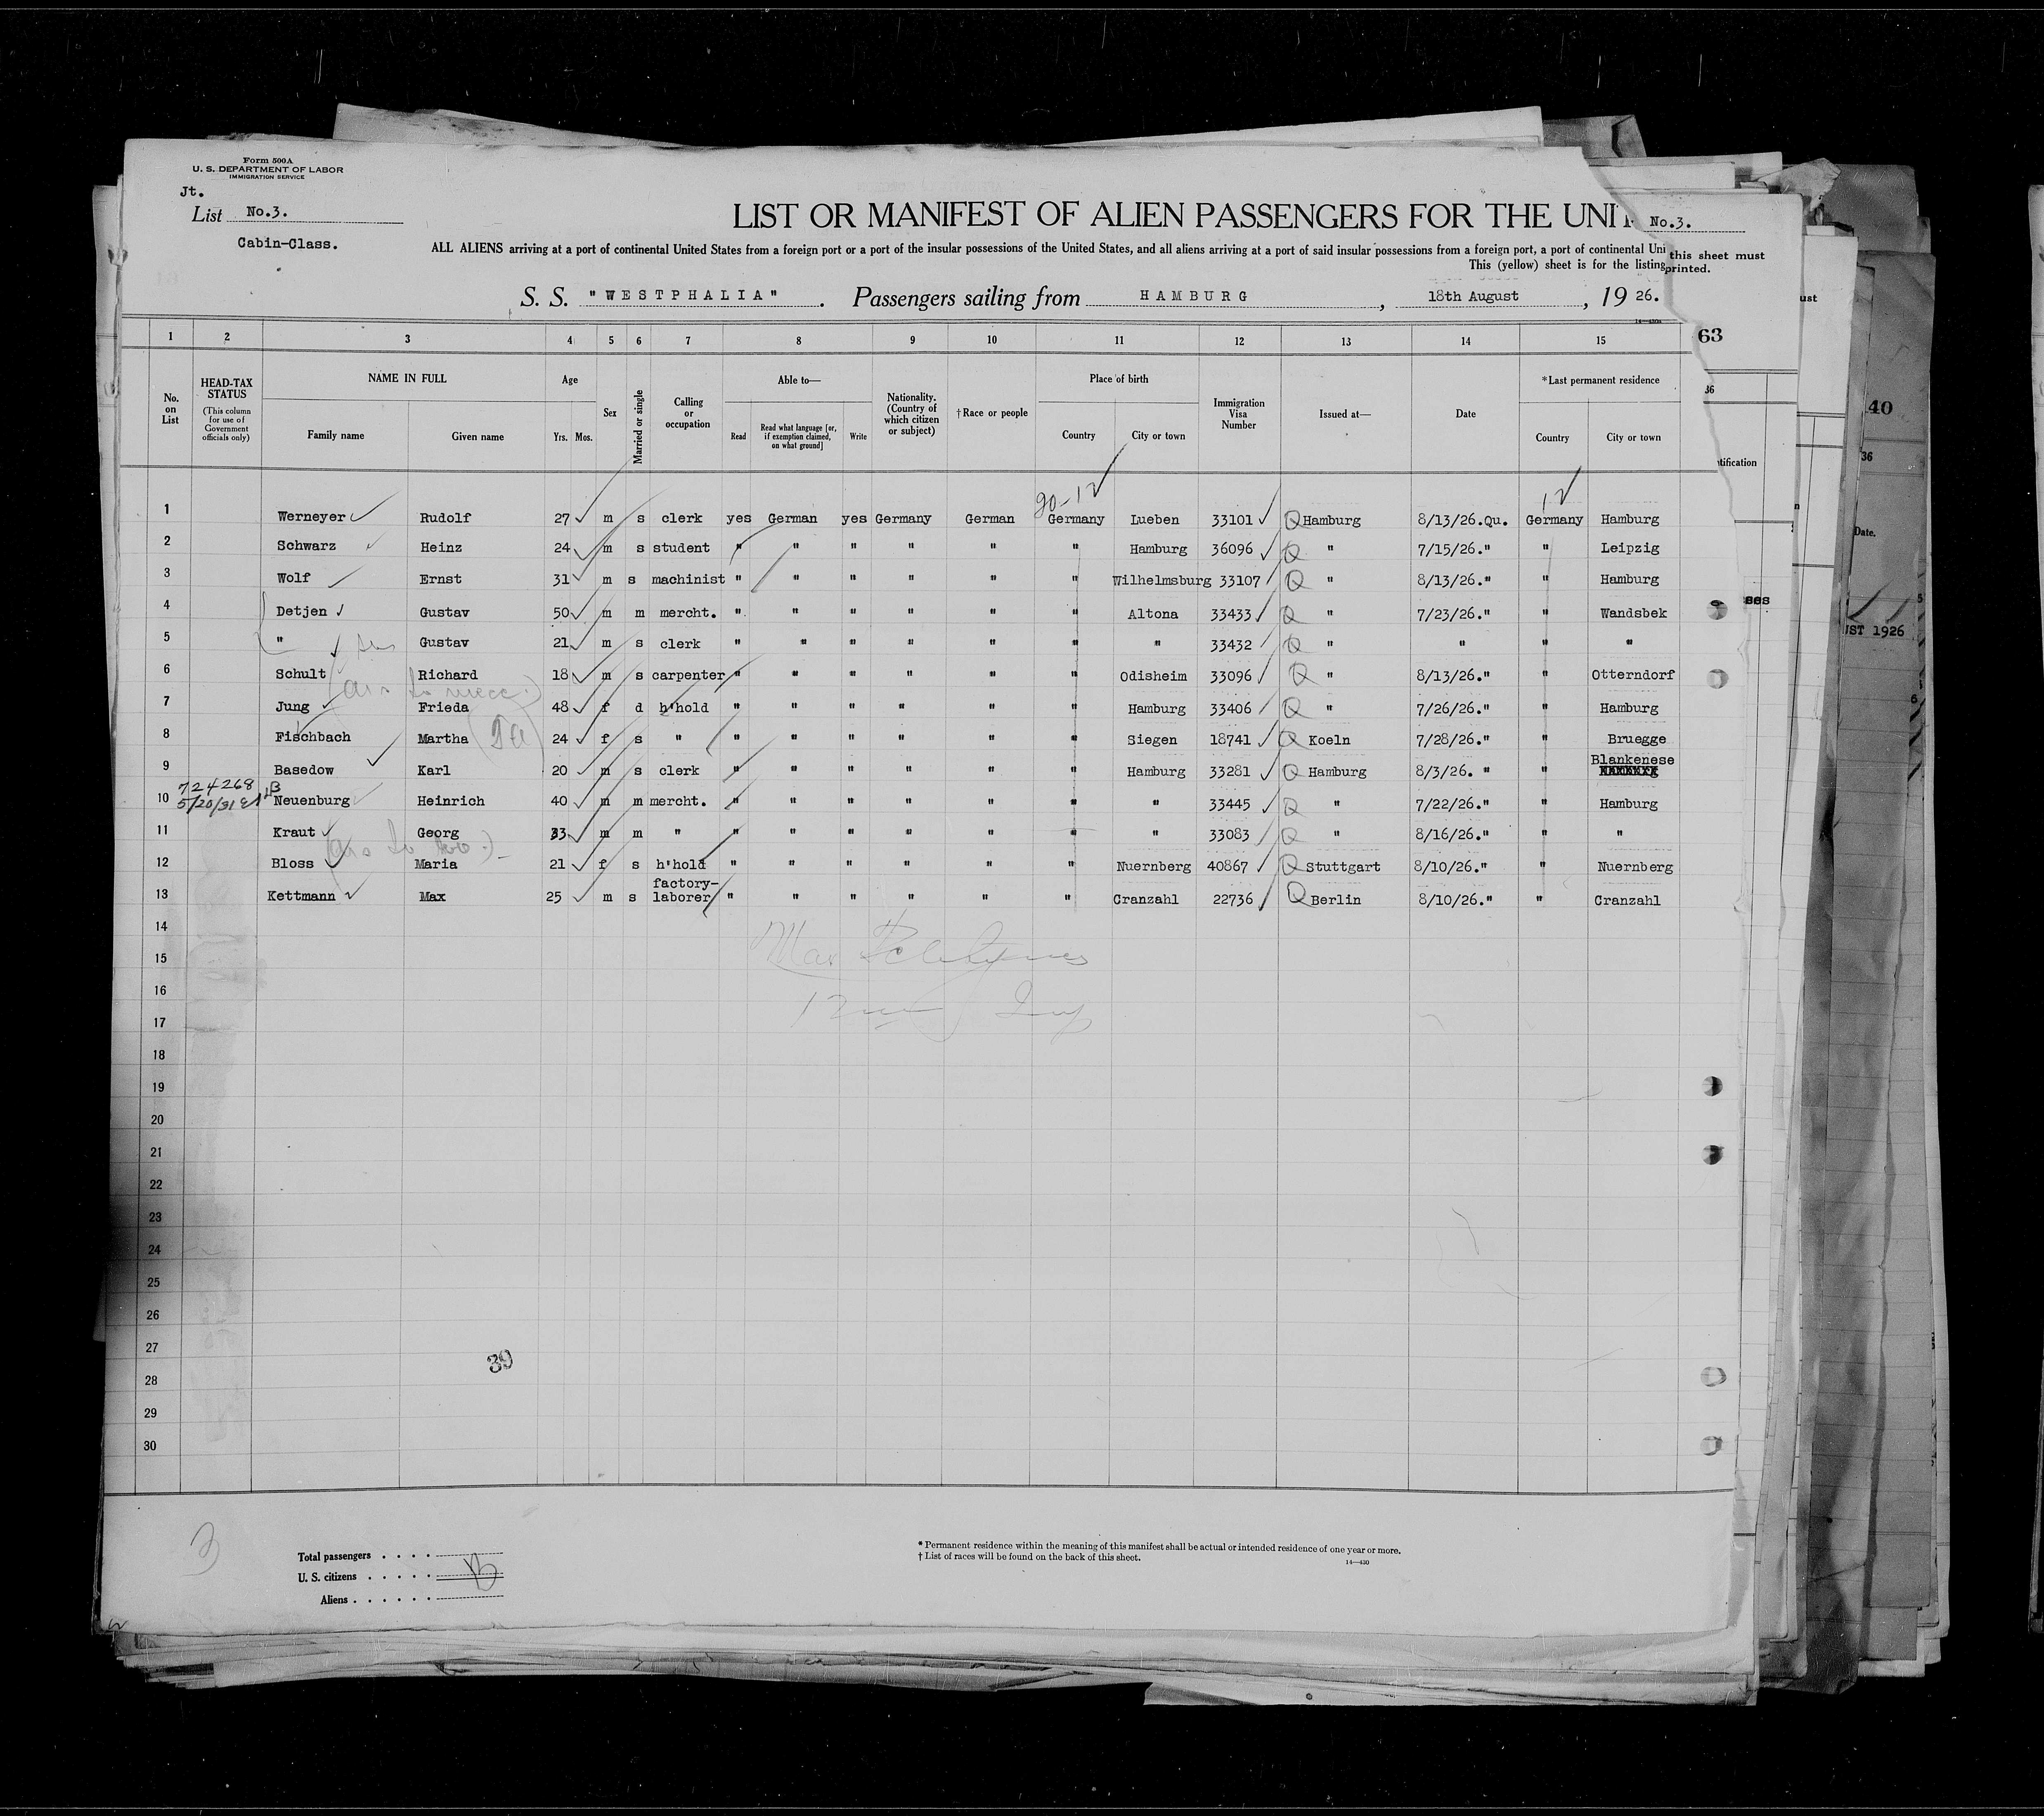 Form 500A
U. S. DEPARTMENT OF LABOR
IMMIGRATION SERVICE
Jt.
List No.3.
Cabin-Class.
LIST OR MANIFEST OF ALIEN PASSENGERS FOR THE UNI No.3.
ALL ALIENS arriving at a port of continental United States from a foreign port or a port of the insular possessions of the United States, and all aliens arriving at a port of said insular possessions from a foreign port, a port of continental Uni this sheet must
This (yellow) sheet is for the listing printed.
S. S. "WESTPHALIA" . Passengers sailing from HAMBURG , 18th August , 19 26.
ust
1 2 3 4 5 6 7 8 9 10 11 12 13 14 15 63
No. on List
HEAD-TAX STATUS (This column for use of Government officials only)
NAME IN FULL
Family name Given name
Age
Yrs. Mos.
Sex
Married or single
Calling or occupation
Able to—
Read Read what language [or, if exemption claimed, on what ground] Write
Nationality. (Country of which citizen or subject)
† Race or people
Place of birth
Country City or town
Immigration Visa Number
Issued at—
Date
* Last permanent residence
Country City or town
36
ntification
40
36
Date.
UST 1926
ses
90-12 12
1 Werneyer Rudolf 27 m s clerk yes German yes Germany German Germany Lueben 33101 Q Hamburg 8/13/26.Qu. Germany Hamburg
2 Schwarz Heinz 24 m s student " " " " " " Hamburg 36096 Q " 7/15/26." " Leipzig
3 Wolf Ernst 31 m s machinist " " " " " " Wilhelmsburg 33107 Q " 8/13/26." " Hamburg
4 Detjen Gustav 50 m m mercht. " " " " " " Altona 33433 Q " 7/23/26." " Wandsbek
5 " Gustav 21 m s clerk " " " " " " " 33432 Q " " " "
6 Schult Richard 18 m s carpenter " " " " " " Odisheim 33096 Q " 8/13/26." " Otterndorf
7 Jung Frieda 48 f d h'hold " " " " " " Hamburg 33406 Q " 7/26/26." " Hamburg
8 Fischbach Martha 24 f s " " " " " " " Siegen 18741 Q Koeln 7/28/26." " Bruegge
9 Basedow Karl 20 m s clerk " " " " " " Hamburg 33281 Q Hamburg 8/3/26. " " Blankenese
724268
5/20/31
10 Neuenburg Heinrich 40 m m mercht. " " " " " " " 33445 Q " 7/22/26." " Hamburg
11 Kraut Georg 33 m m " " " " " " " " 33083 Q " 8/16/26." " "
12 Bloss Maria 21 f s h'hold " " " " " " Nuernberg 40867 Q Stuttgart 8/10/26." " Nuernberg
13 Kettmann Max 25 m s factory-laborer " " " " " " Cranzahl 22736 Q Berlin 8/10/26." " Cranzahl
14
15
16
17
18
19
20
21
22
23
24
25
26
27
39
28
29
30
3
Total passengers . . . .
U. S. citizens . . . . .
Aliens . . . . . .
13
* Permanent residence within the meaning of this manifest shall be actual or intended residence of one year or more.
† List of races will be found on the back of this sheet.
14—430